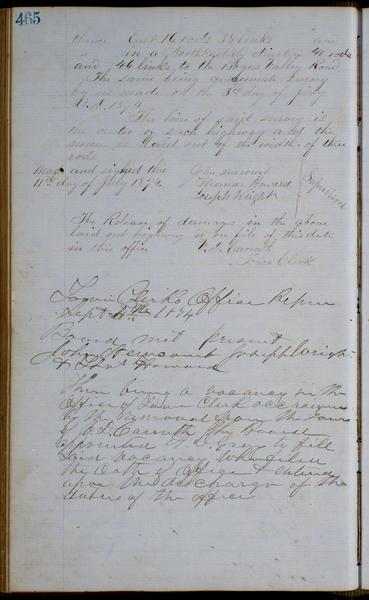 465
thence East 16 rods 33 links
in a Northeasterly direction 40 rods
and 46 links to the Valley Road
The same being survey
by us made on the 3rd day of July
A.D. 1874
The line of said survey is
the center of such highway and the
same is laid out of the width of three
rods
Made and signed this John Newcomt
11th day of July 1874. Thomas Howard
Joseph Wright
Supervisors
The Release of damages in the above
laid out highway is on file of this date
in this office
Town Clerk
Town Clerks Office
Sept 1874
Board met present
John Joseph Wright
& Howard
There being a vacancy in the
Office of Town Clerk
by the removal from the Town
of the Board
appointed to fill
said vacancy who filed
the Oath of Office &
upon the discharge of the
duties of the office